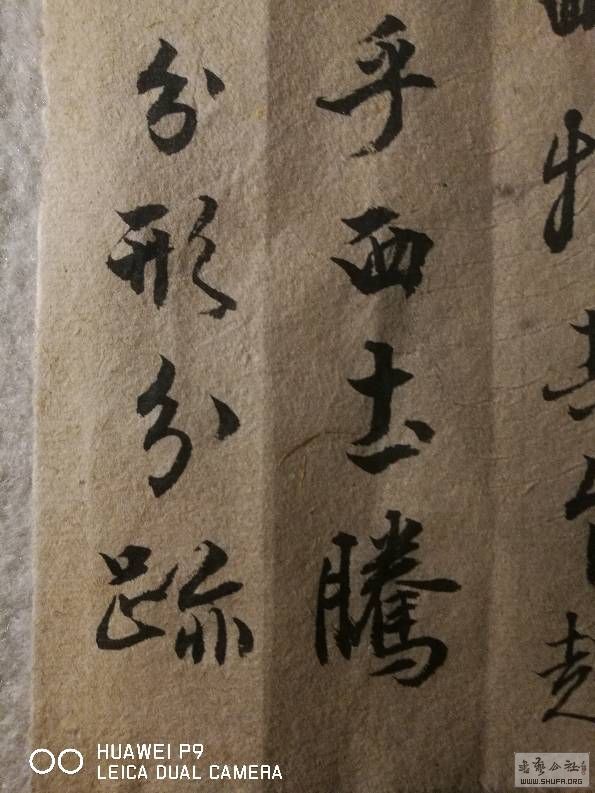 乎西圡騰
分形分跡
HUAWEI P9
LEICA DUAL CAMERA
书艺公社
WWW.SHUFA.ORG